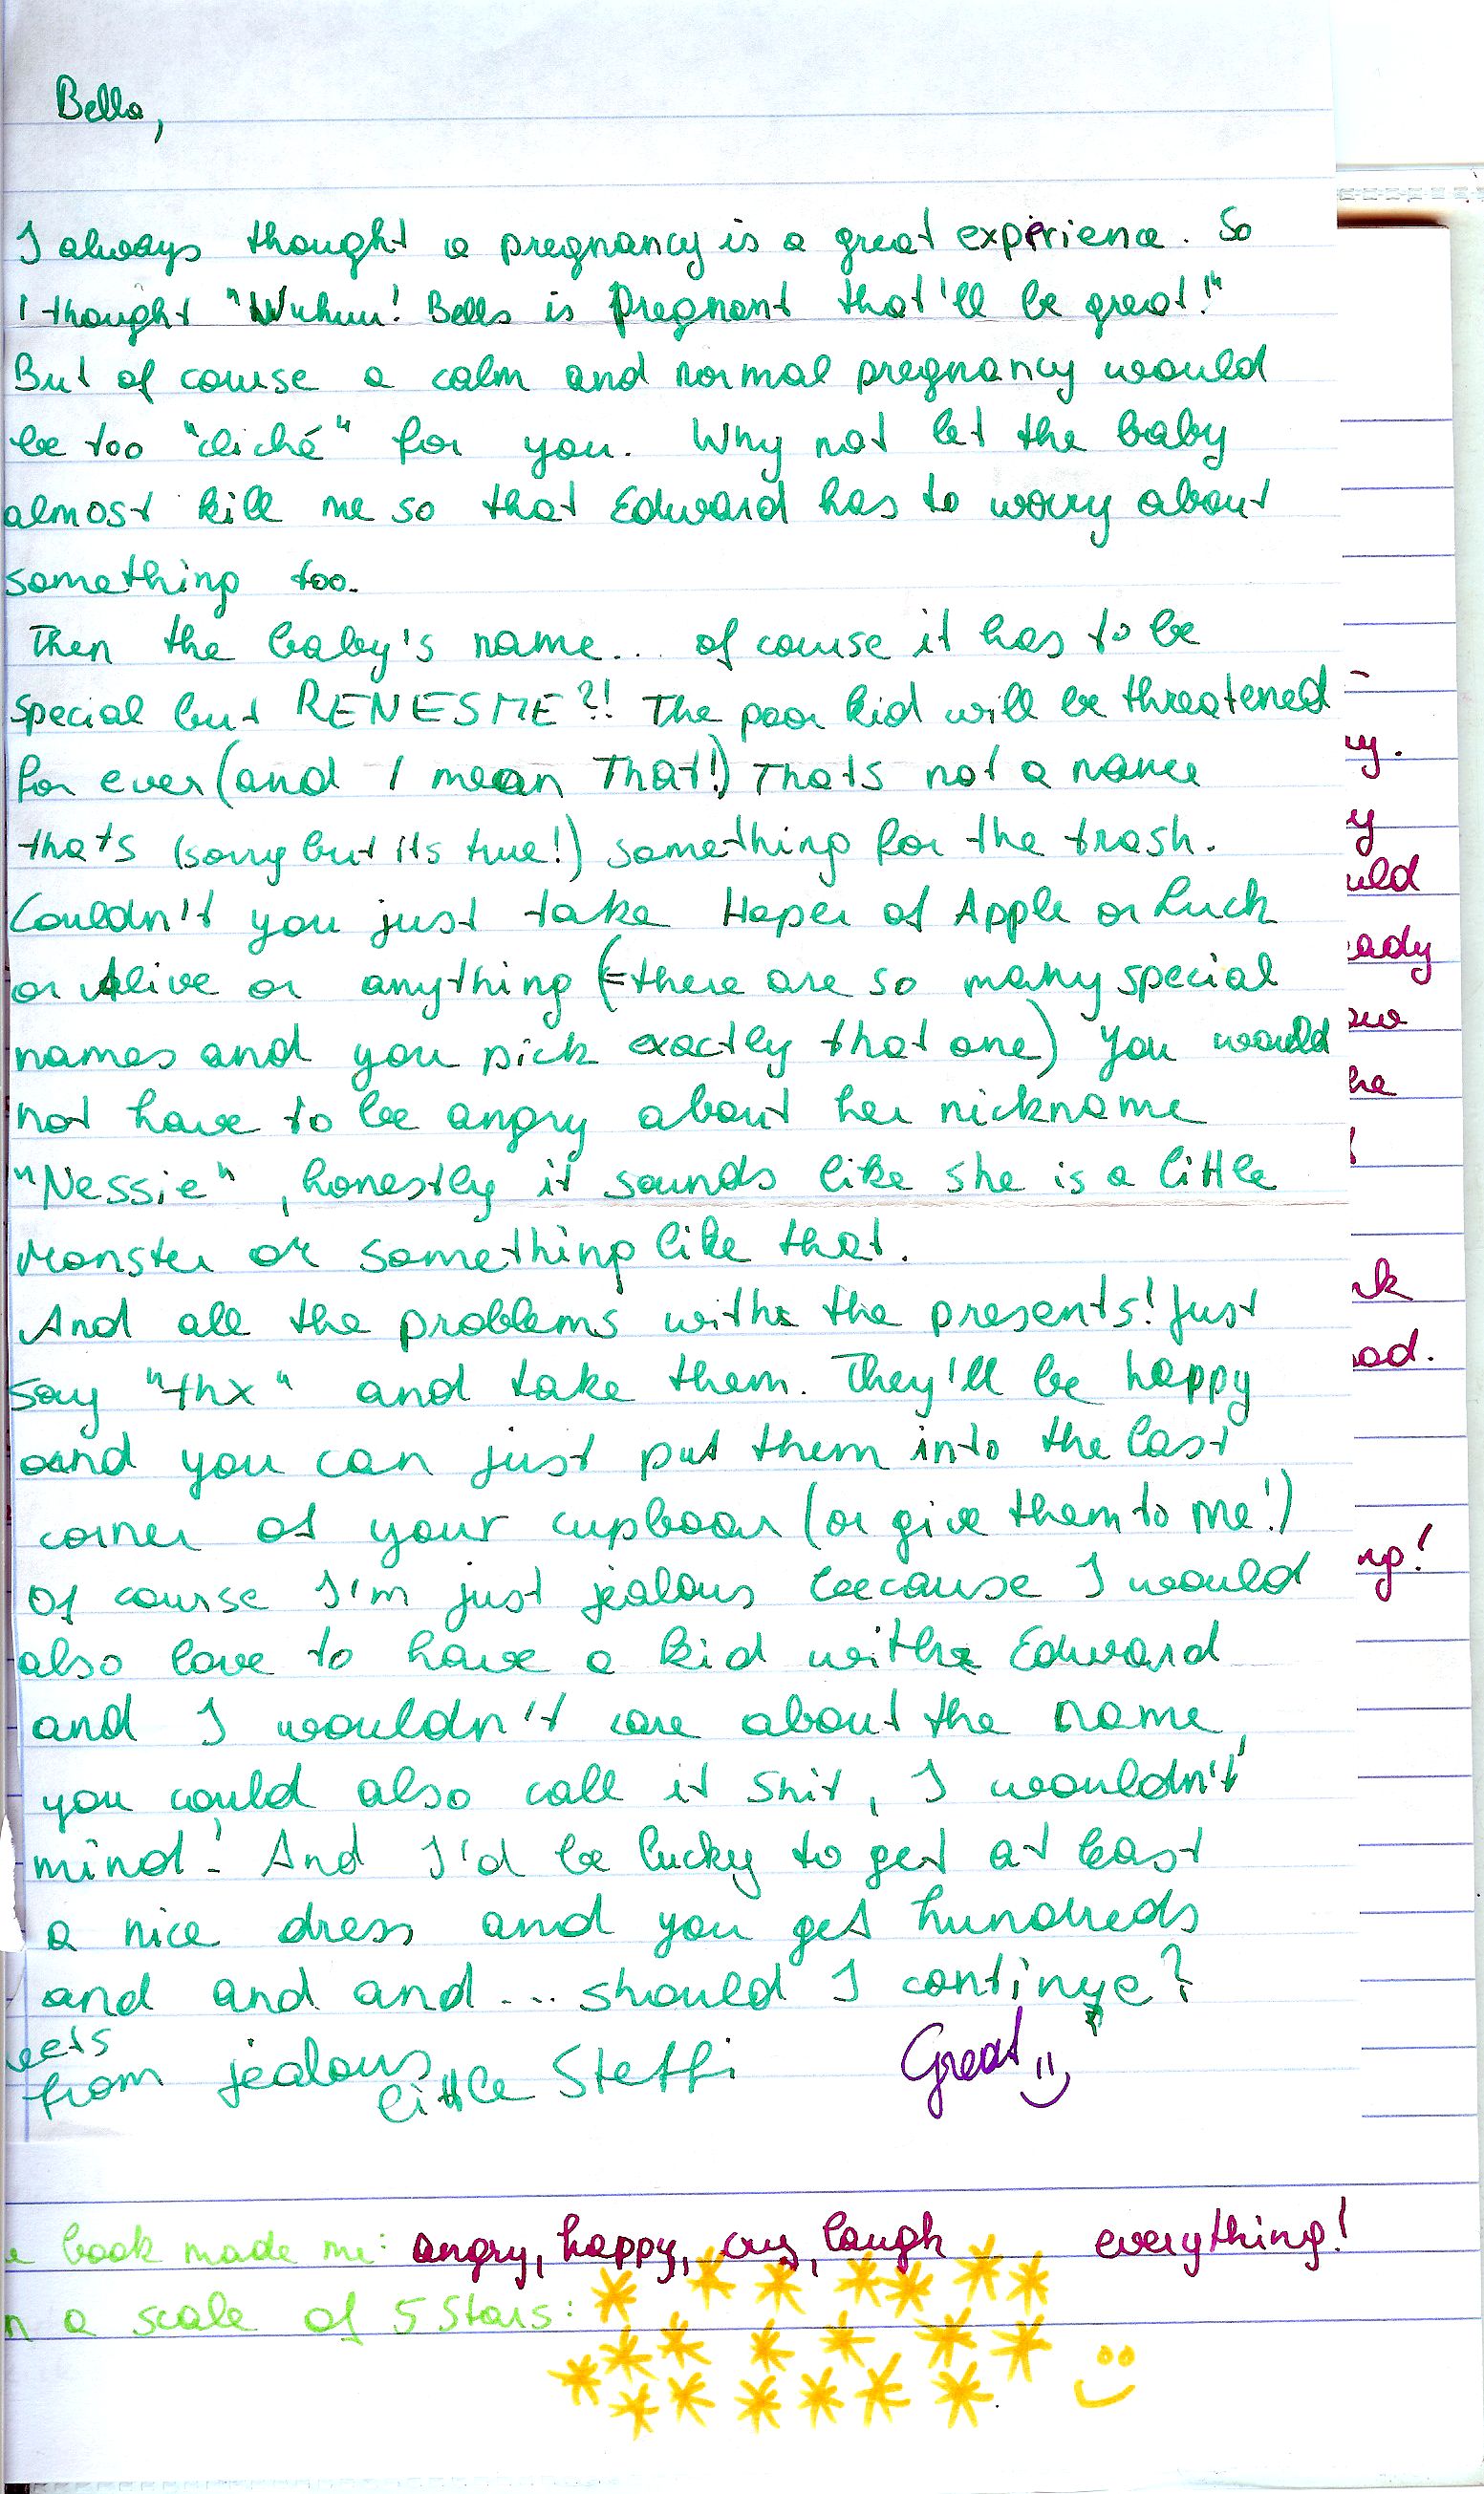 Bella,
I always thought a pregnancy is a great experience. So
I thought "Wuhuu! Bella is pregnant that'll be great!"
But of course a calm and normal pregnancy would
be too "cliché" for you. Why not let the baby
almost kill me so that Edward has to worry about
something too.
Then the baby's name... of course it has to be
special but RENESME?! The poor kid will be threatened
for ever (and I mean That!) Thats not a name
thats (sorry but its true!) something for the trash.
Couldn't you just take Hoper of Apple or Luck
or Alive or anything (there are so many special
names and you pick exactly that one) You would
not have to be angry about her nickname
"Nessie", honestly it sounds like she is a little
Monster or something like that.
And all the problems with the presents! Just
say "thx" and take them. They'll be happy
and you can just put them into the last
corner of your cupboar (or give them to me!)
Of course I'm just jealous because I would
also love to have a kid with Edward
and I wouldn't care about the name,
you could also call it Shit, I wouldn't
mind! And I'd be lucky to get at least
a nice dress and you get hundreds
and and and... should I continye?
eets
from jealous little Steffi
Great
book made me: angry, happy, cry, laugh everything!
n a scale of 5 Stars:
y.
y
uld
ady
he
!
ck
ad.
ng!